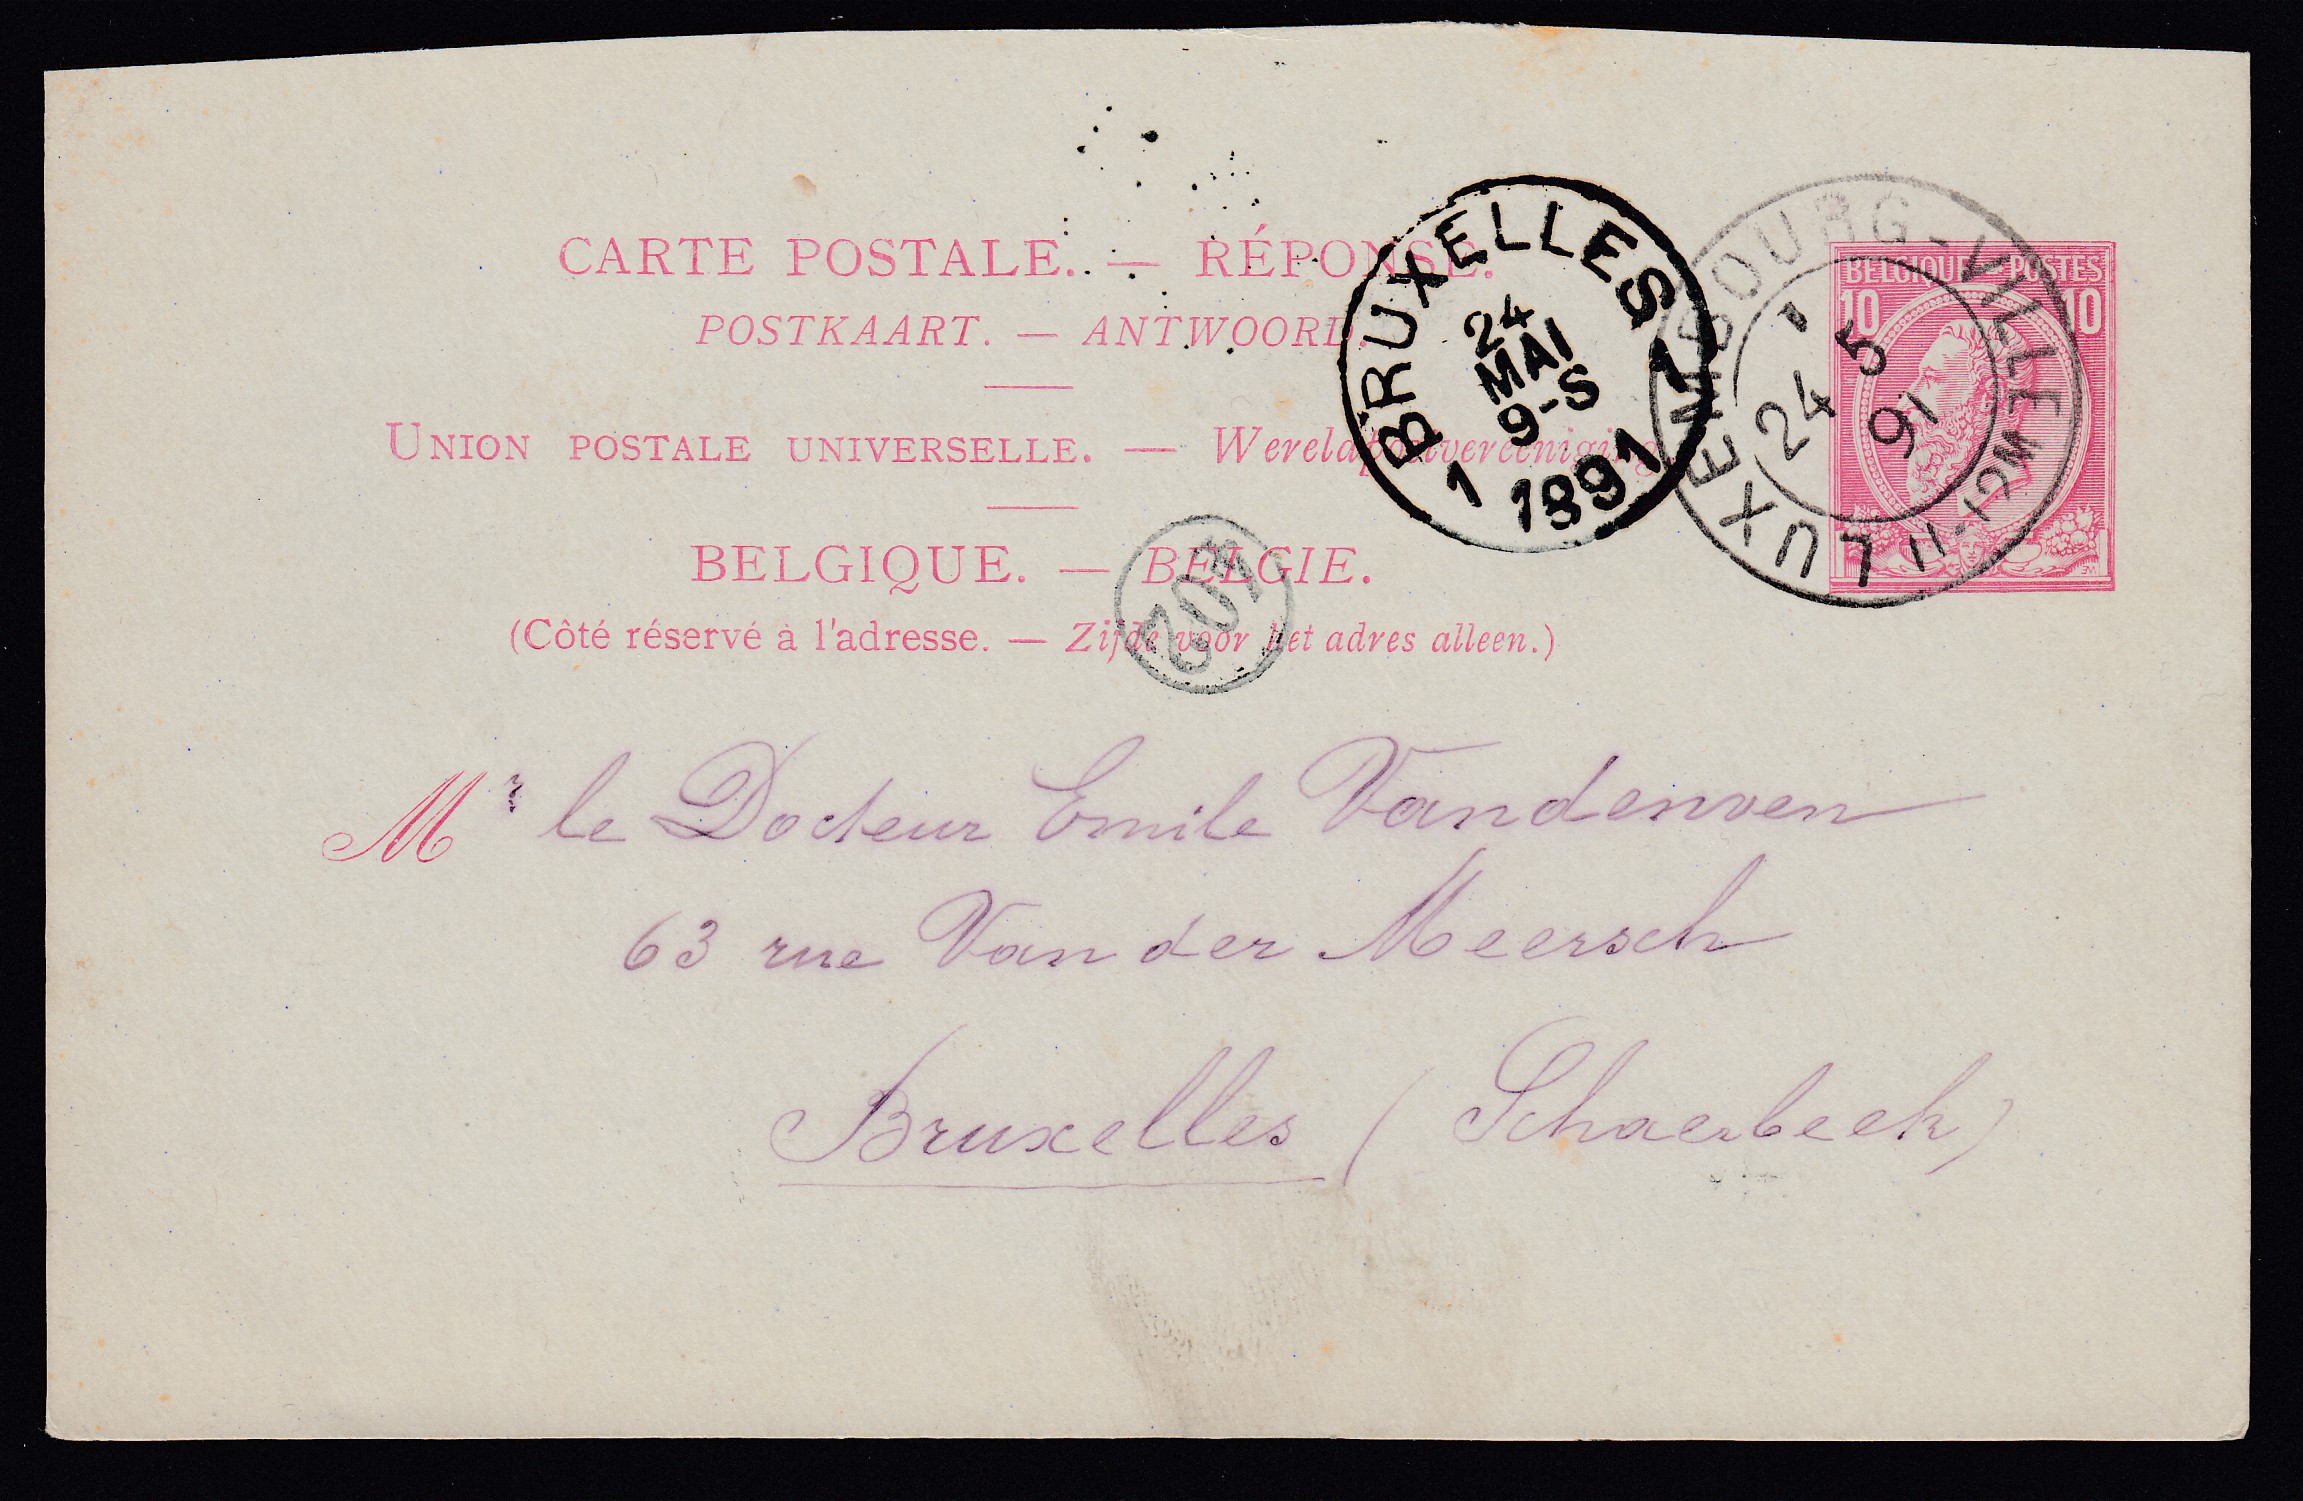 CARTE POSTALE. — RÉPONSE.
POSTKAART. — ANTWOORD.
UNION POSTALE UNIVERSELLE. — Wereldpostvereeniging.
BELGIQUE. — BELGIE.
(Côté réservé à l'adresse. — Zijde voor het adres alleen.)
BRUXELLES 1
24
MAI
9-S
1 1891
LUXEMBOURG-VILLE
1
24 5
91
BELGIQUE — POSTES
10 10
402
Mr le Docteur Emile Vandenven
63 rue Van der Meersch
Bruxelles (Schaerbeek)